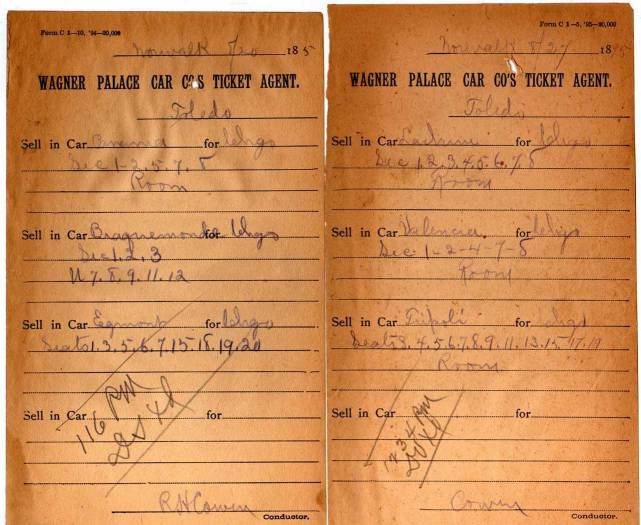 Form C 1—10, '94—20,000
Norwalk 8/20 1895
WAGNER PALACE CAR CO'S TICKET AGENT.
Toledo
Sell in Car for Chgo
Sec 1-2.5.7.8
Room
Sell in Car for Chgo
Sec 1.2.3
U 7.8.9.11.12
Sell in Car Egmont for Chgo
Seats 1.3.5.6.7.15.18.19.20
Sell in Car for
116 PM
RH Cowen
Conductor.
Form C 1—5, '95—20,000
Norwalk 8/27 1895
WAGNER PALACE CAR CO'S TICKET AGENT.
Toledo
Sell in Car for Chgo
Sec 1.2.3.4.5.6.7.8
Room
Sell in Car Valencia for Chgo
Sec 1-2-4-7-8
Room
Sell in Car Tripoli for Chgo
Seats 3.4.5.6.7.8.9.11.13.15.17.19
Room
Sell in Car for
1234 PM
Cowen
Conductor.